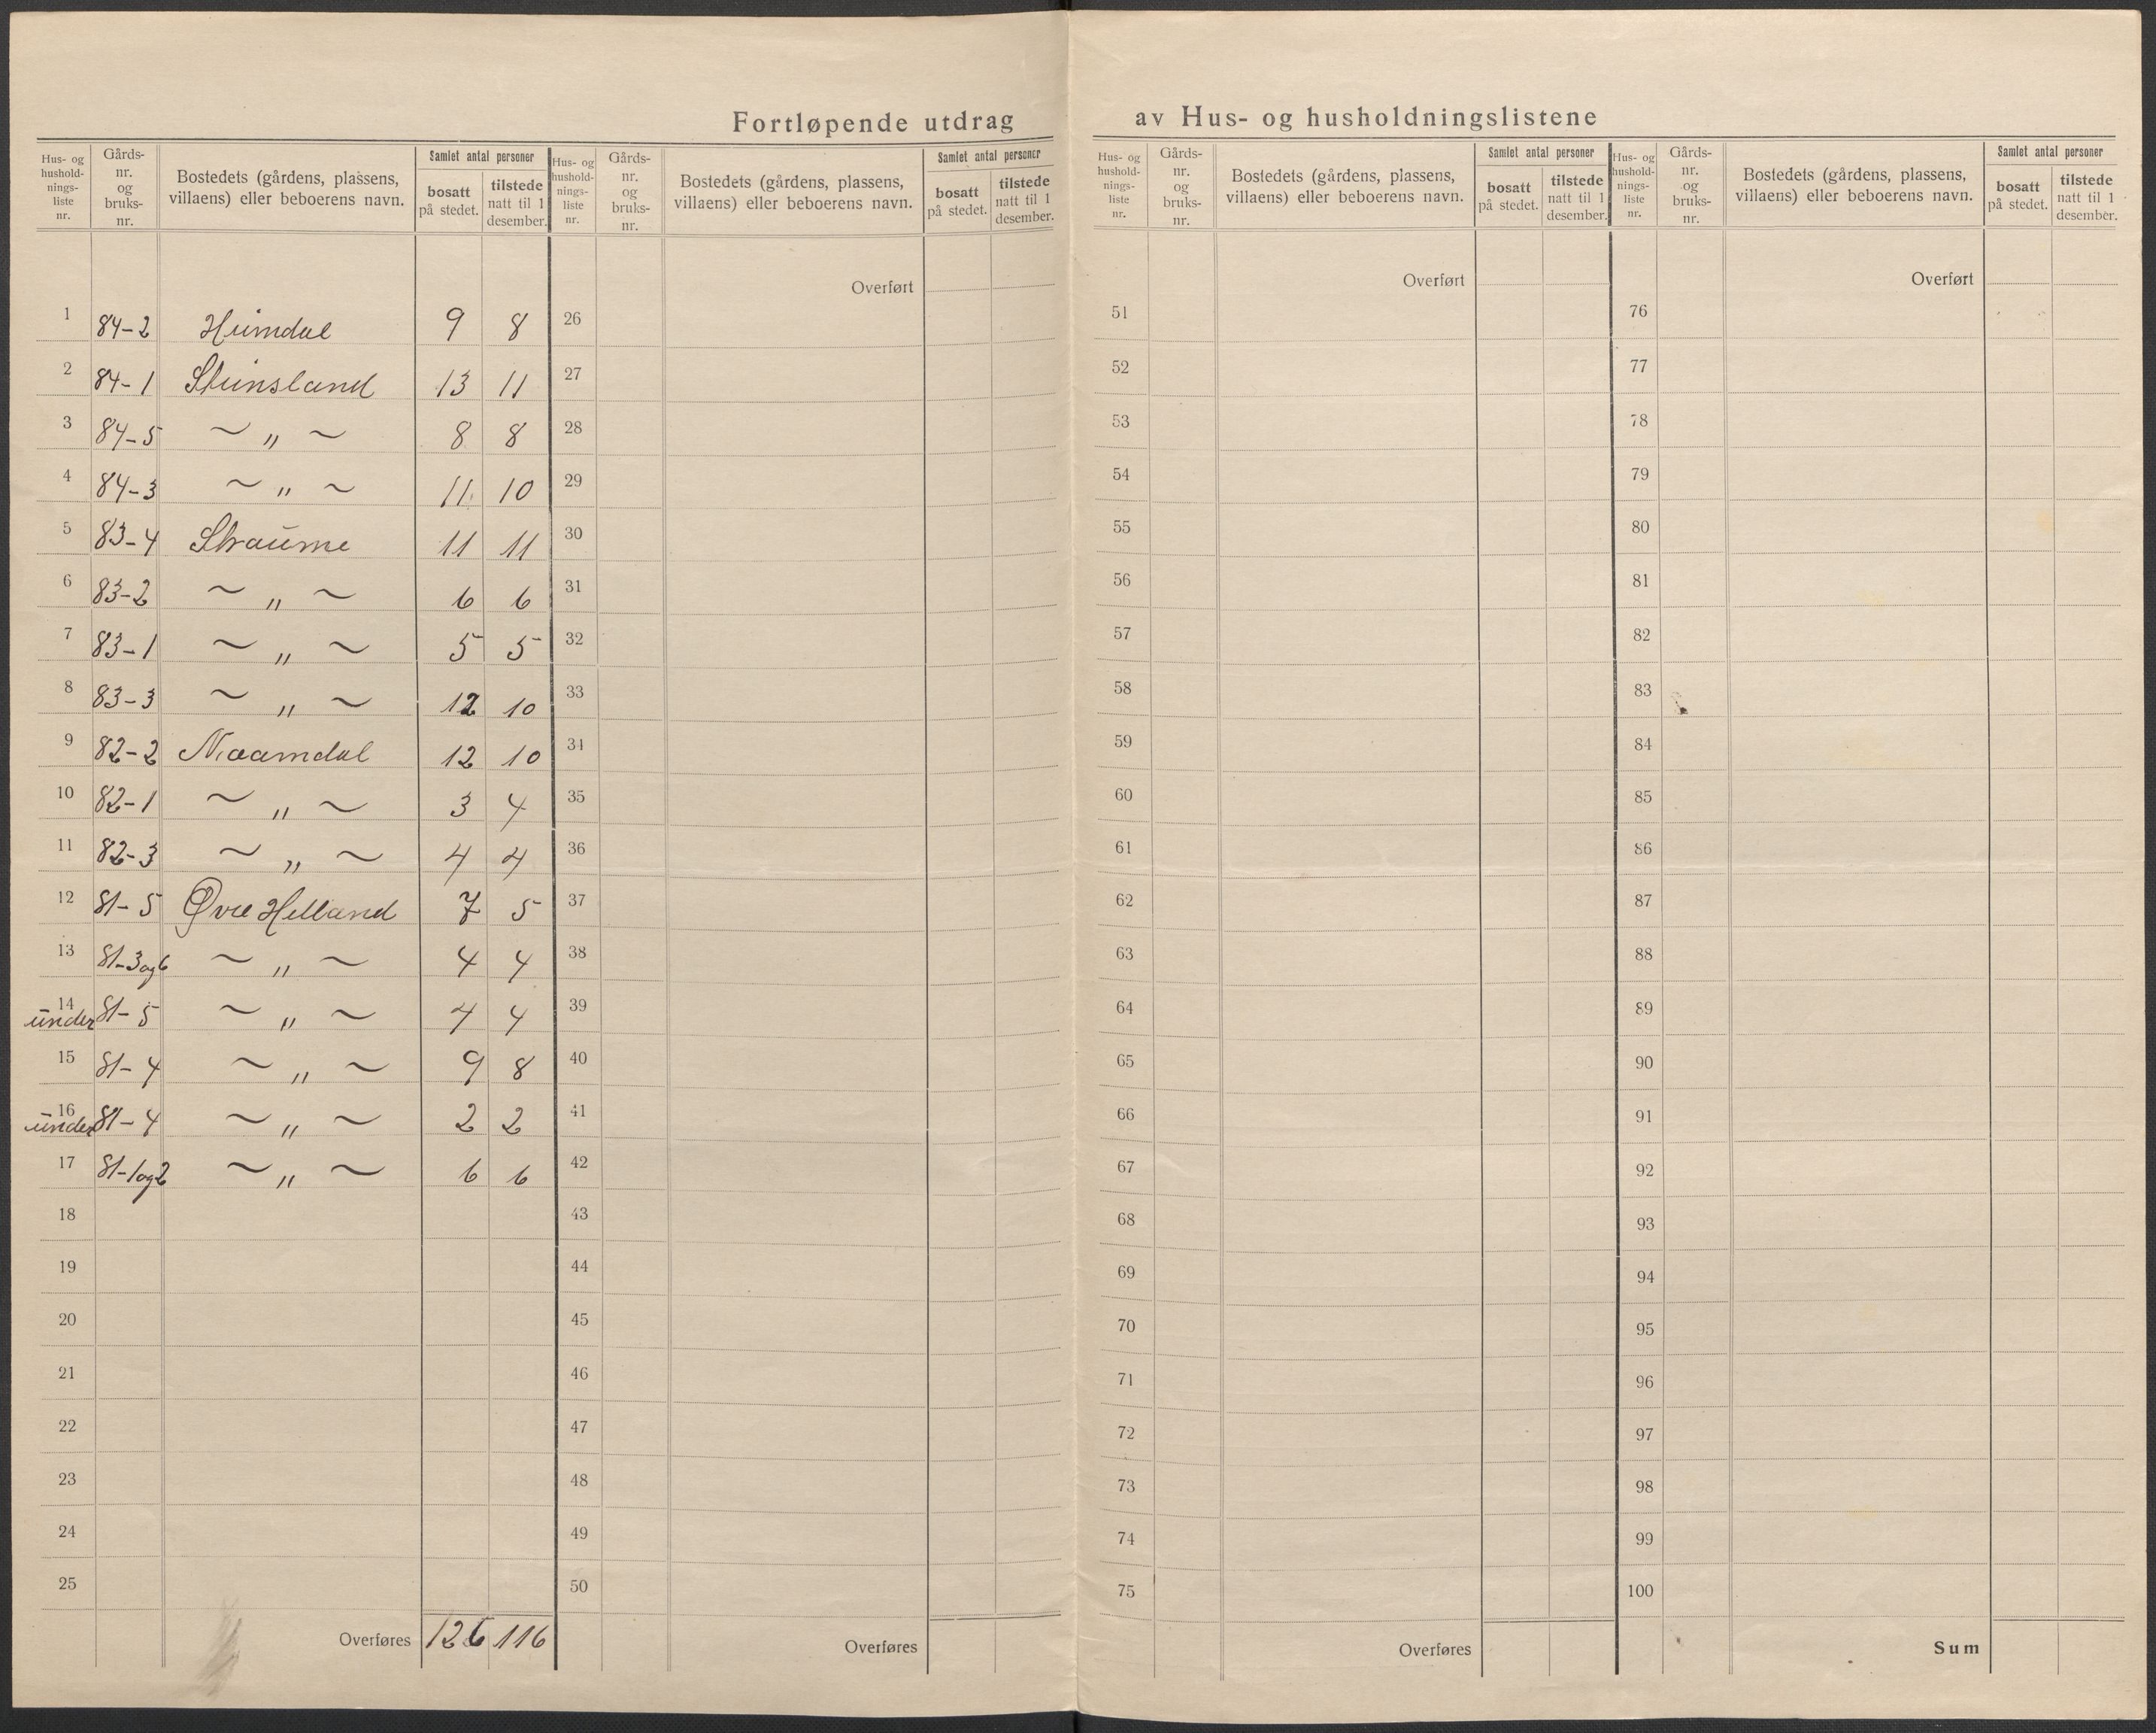 Fortløpende utdrag av Hus- og husholdningslistene
Hus- og hushold-nings-liste nr. Gårds-nr. og bruks-nr. Bostedets (gårdens, plassens, villaens) eller beboerens navn. Samlet antal personer bosatt på stedet. tilstede natt til 1 desember.
1 84-2 Heimdal 9 8
2 84-1 Steinsland 13 11
3 84-5 ~ " ~ 8 8
4 84-3 ~ " ~ 11 10
5 83-4 Straume 11 11
6 83-2 ~ " ~ 6 6
7 83-1 ~ " ~ 5 5
8 83-3 ~ " ~ 12 10
9 82-2 Naamdal 12 10
10 82-1 ~ " ~ 3 4
11 82-3 ~ " ~ 4 4
12 81-5 Øvre Helland 7 5
13 81-3og6 ~ " ~ 4 4
14 under 81-5 ~ " ~ 4 4
15 81-4 ~ " ~ 9 8
16 under 81-4 ~ " ~ 2 2
17 81-1og2 ~ " ~ 6 6
18
19
20
21
22
23
24
25
Overføres 126 116
Hus- og hushold-nings-liste nr. Gårds-nr. og bruks-nr. Bostedets (gårdens, plassens, villaens) eller beboerens navn. Samlet antal personer bosatt på stedet. tilstede natt til 1 desember.
Overført
26
27
28
29
30
31
32
33
34
35
36
37
38
39
40
41
42
43
44
45
46
47
48
49
50
Overføres
Hus- og hushold-nings-liste nr. Gårds-nr. og bruks-nr. Bostedets (gårdens, plassens, villaens) eller beboerens navn. Samlet antal personer bosatt på stedet. tilstede natt til 1 desember.
Overført
51
52
53
54
55
56
57
58
59
60
61
62
63
64
65
66
67
68
69
70
71
72
73
74
75
Overføres
Hus- og hushold-nings-liste nr. Gårds-nr. og bruks-nr. Bostedets (gårdens, plassens, villaens) eller beboerens navn. Samlet antal personer bosatt på stedet. tilstede natt til 1 desember.
Overført
76
77
78
79
80
81
82
83
84
85
86
87
88
89
90
91
92
93
94
95
96
97
98
99
100
Sum